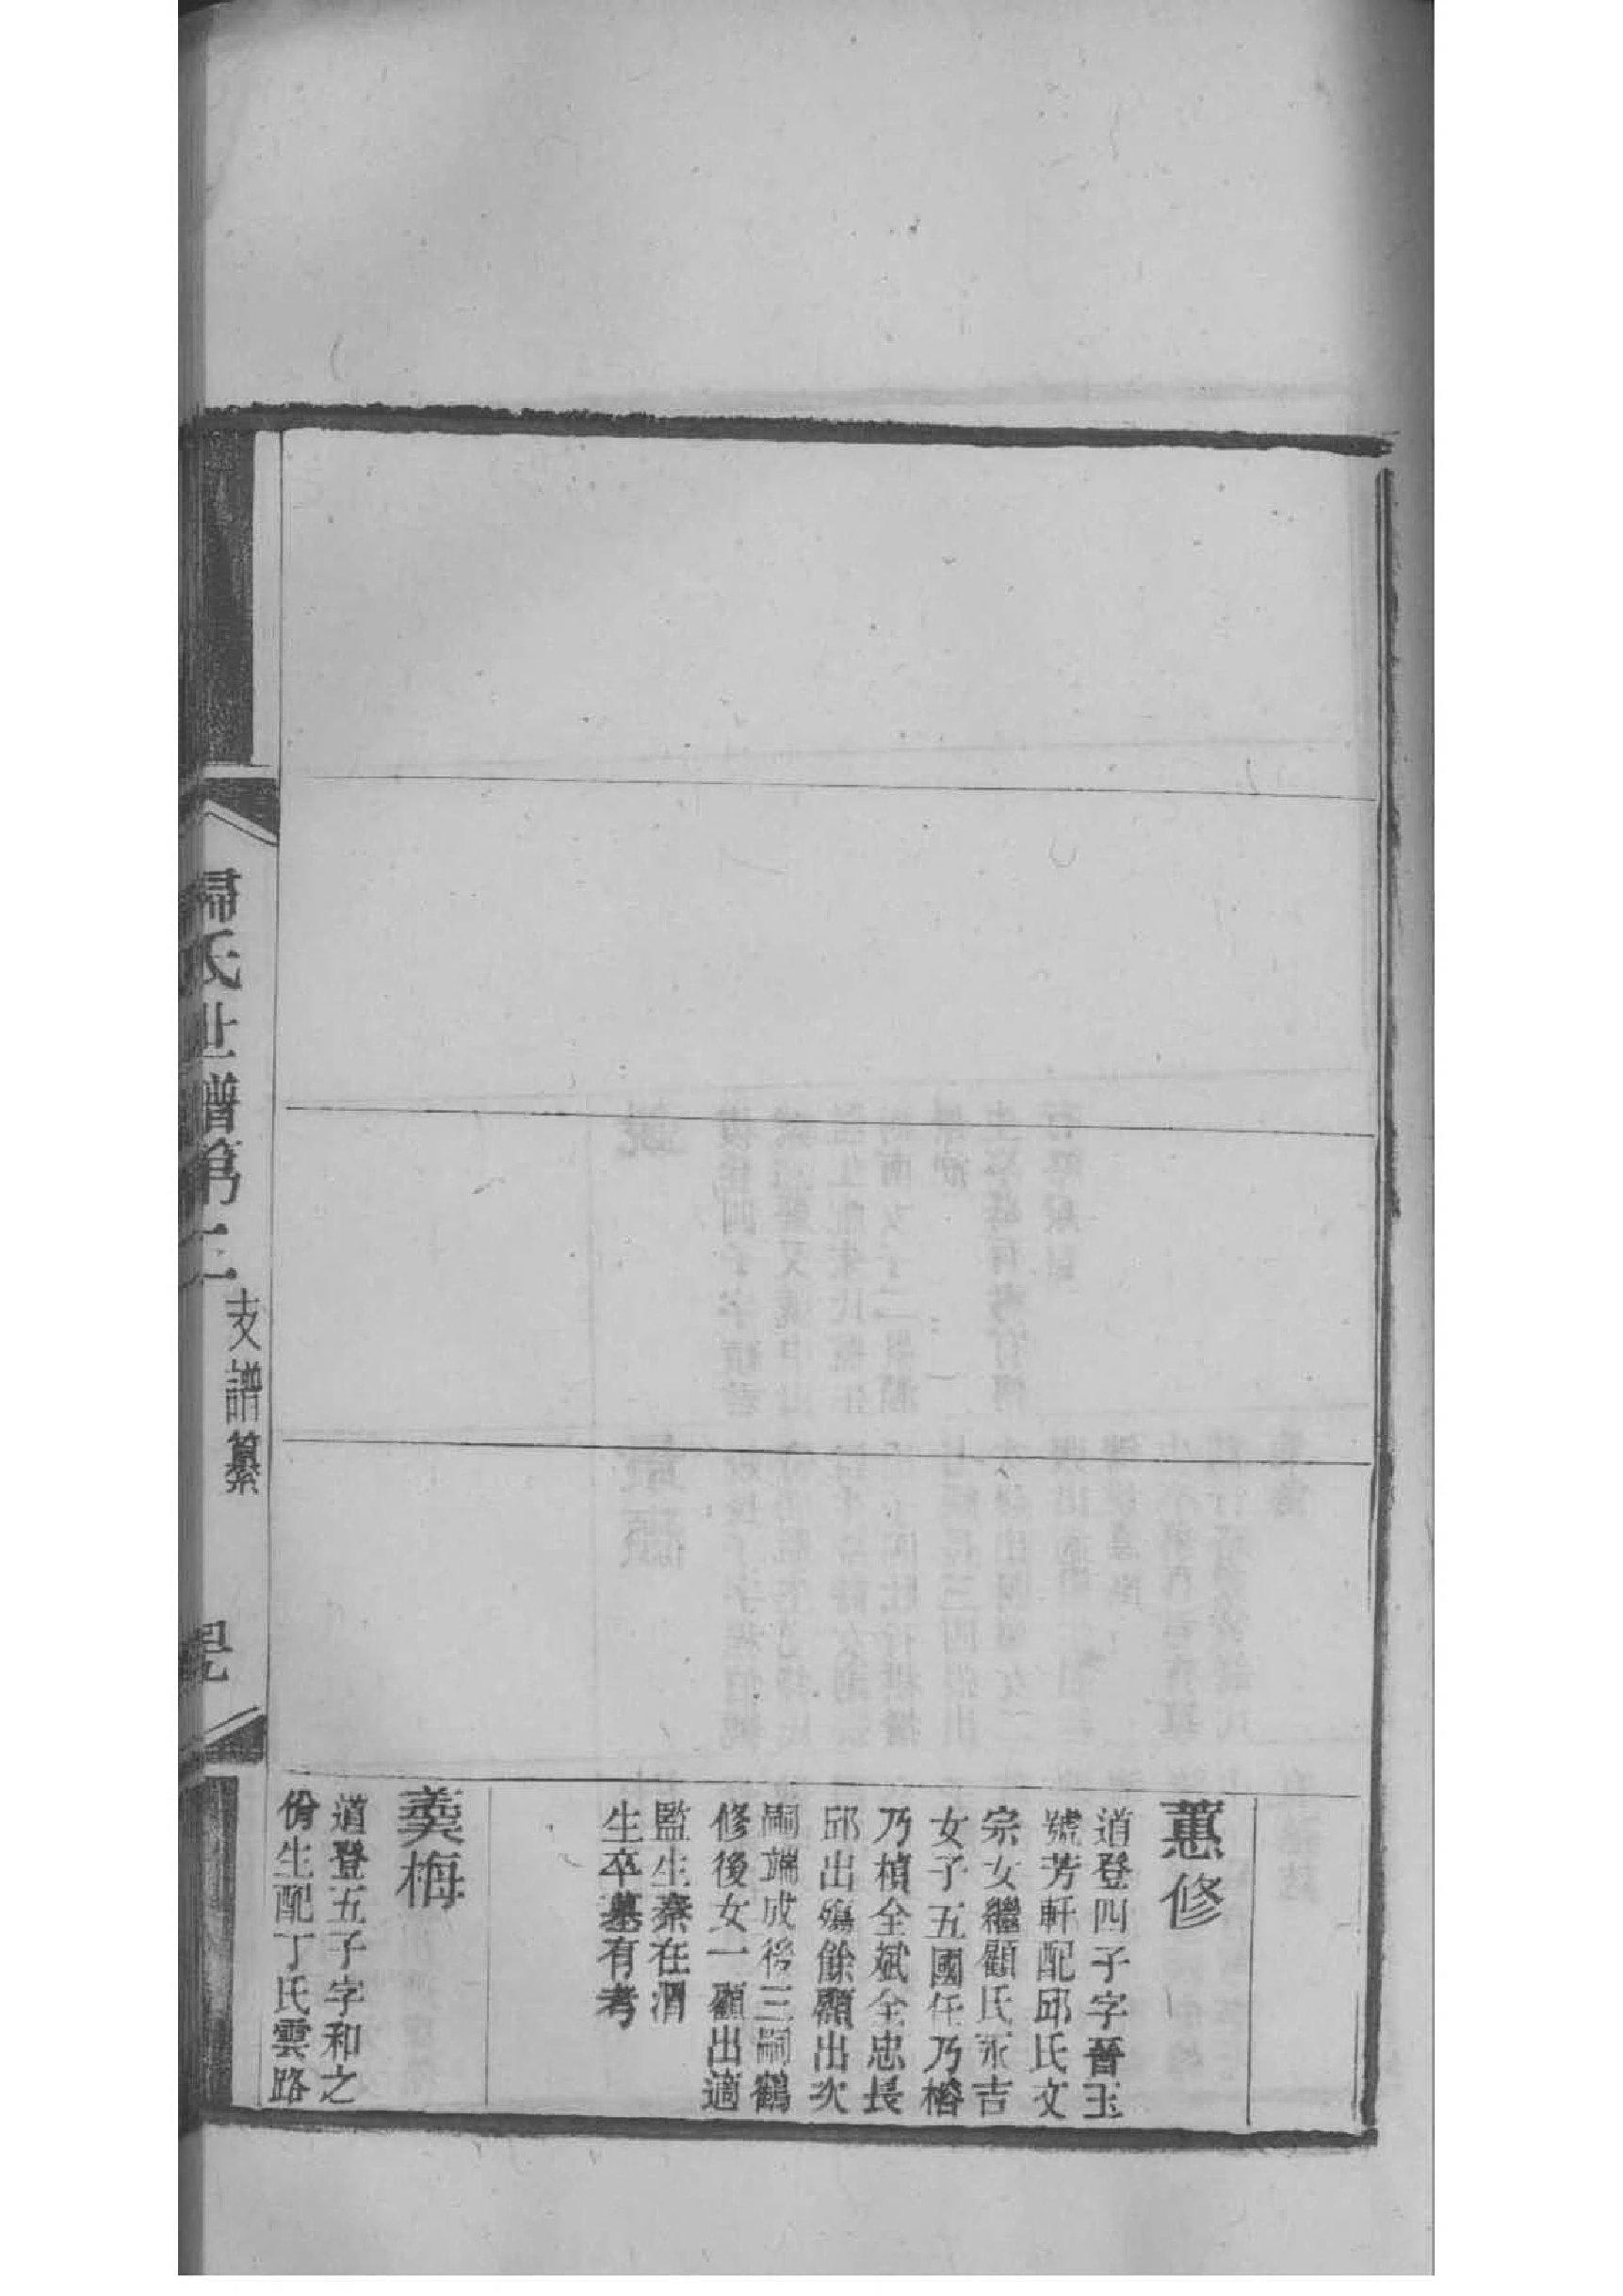 蕙修
道登四子字晉玉
號芳軒配邱氏文
宗女繼顧氏永吉
女子五國任乃榕
乃楨全斌全忠長
邱出殤餘顧出次
嗣端成後三嗣鶴
修後女一顧出適
監生秦在渭
生卒墓有考
蓂梅
道登五子字和之
佾生配丁氏雲路
歸氏世譜第三
支譜纂